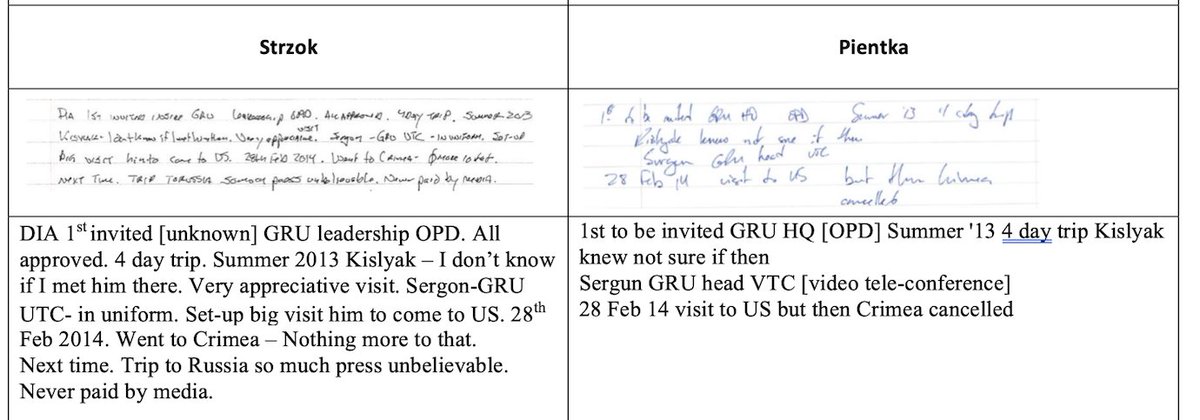 Strzok
Pientka
DIA 1st invited inside GRU Leadership OPD. All approved. 4 day trip. Summer 2013
Kislyak - I don't know if I met him. Very appreciative. visit Sergon - GRU UTC - in uniform. Set-up
Big visit him to come to US. 28th Feb 2014. Went to Crimea - more to that.
Next time. Trip to Russia so much press unbelievable. Never paid by media.
1st to be invited GRU HQ OPD Summer '13 4 day trip
Kislyak knew not sure if then
Surgen GRU head VTC
28 Feb 14 visit to US but then Crimea
cancelled
DIA 1st invited [unknown] GRU leadership OPD. All
approved. 4 day trip. Summer 2013 Kislyak – I don’t know
if I met him there. Very appreciative visit. Sergon-GRU
UTC- in uniform. Set-up big visit him to come to US. 28th
Feb 2014. Went to Crimea – Nothing more to that.
Next time. Trip to Russia so much press unbelievable.
Never paid by media.
1st to be invited GRU HQ [OPD] Summer '13 4 day trip Kislyak
knew not sure if then
Sergun GRU head VTC [video tele-conference]
28 Feb 14 visit to US but then Crimea cancelled